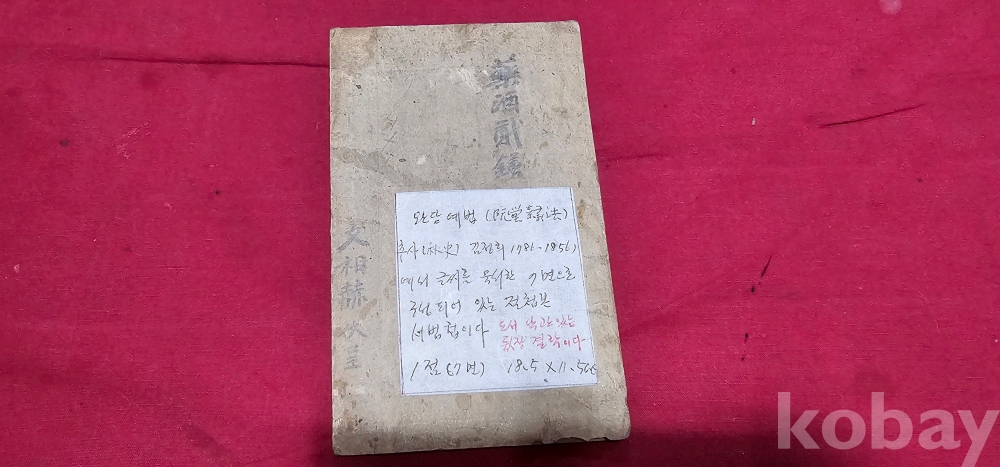 文相赫
완당 예법 (阮堂隷法)
추사(秋史) 김정희 1786-1856)
예서 글씨를 묵서한 7면으로
구성되어 있는 절첩본
서법첩이다 도서 낙관있는
뒷장 결락이다
1점 (7면) 18.5 X 11.5cm
kobay